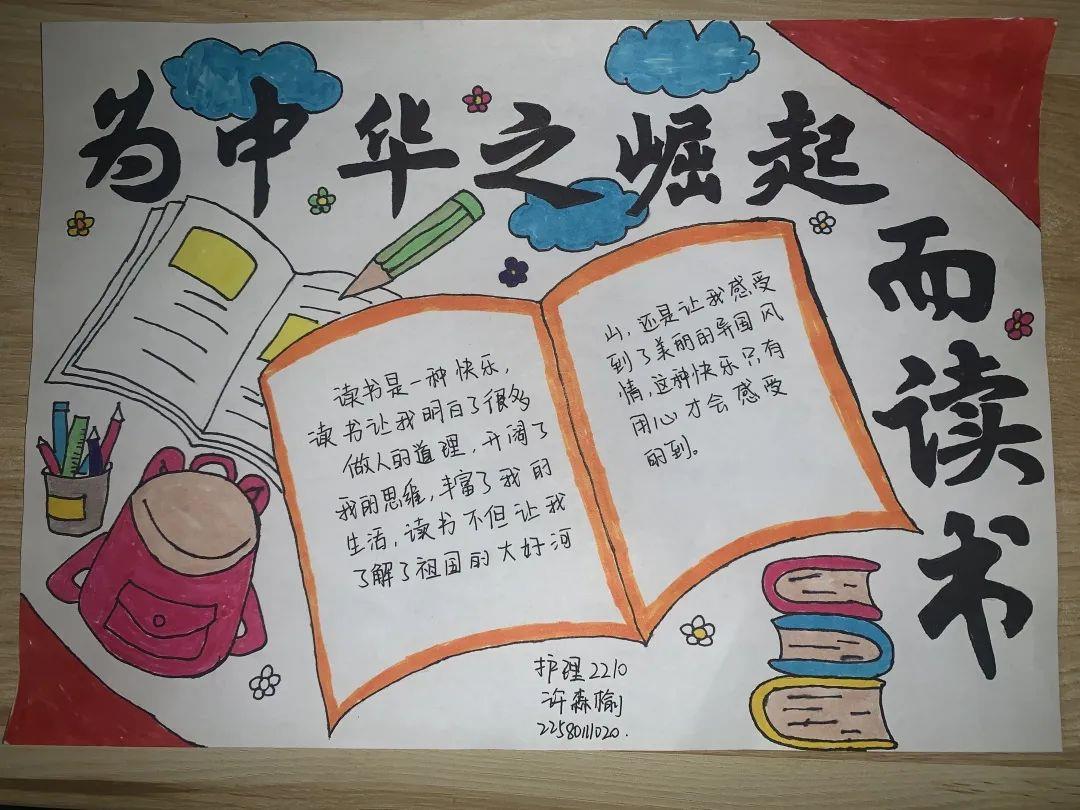 为中华之崛起
而读书
读书是一种快乐，
读书让我明白了很多
做人的道理，开阔了
我的思维，丰富了我的
生活，读书不但让我
了解了祖国的大好河
山，还是让我感受
到了美丽的异国风
情，这种快乐只有
用心才会感受
的到。
护理2210
许森榆
22580111020.